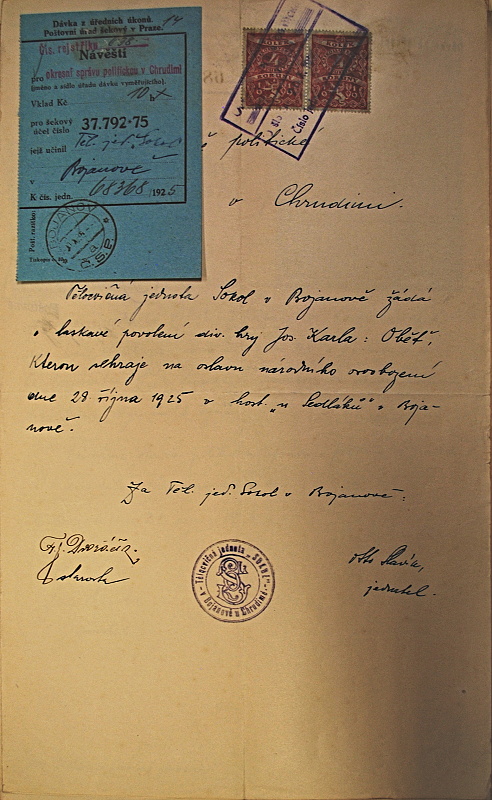 Dávka z úředních úkonů.
Poštovní úřad šekový v Praze.
14
Čís. rejstříku
Návěští
pro okresní správu politickou v Chrudimi
(jméno a sídlo úřadu dávku vyměřujícího).
Vklad Kč 10
pro šekový
účet číslo 37.792·75
jejž učinil Těl. jed. Sokol
v Bojanově
K čís. jedn. 68368/1925
BOJANOV
Č.S.P.
KOLEK KOLEK
politické
v Chrudimi.
Tělocvičná jednota Sokol v Bojanově žádá
o laskavé povolení div. hry Jos. Karla: Oběť,
kterou sehraje na oslavu národního osvobození
dne 28 října 1925 v host. „u Sedláků" v Boja-
nově.
Za Těl. jed. Sokol v Bojanově:
starosta
Otto
jednatel.
Tělocvičná jednota „SOKOL"
v Bojanově u Chrudimě